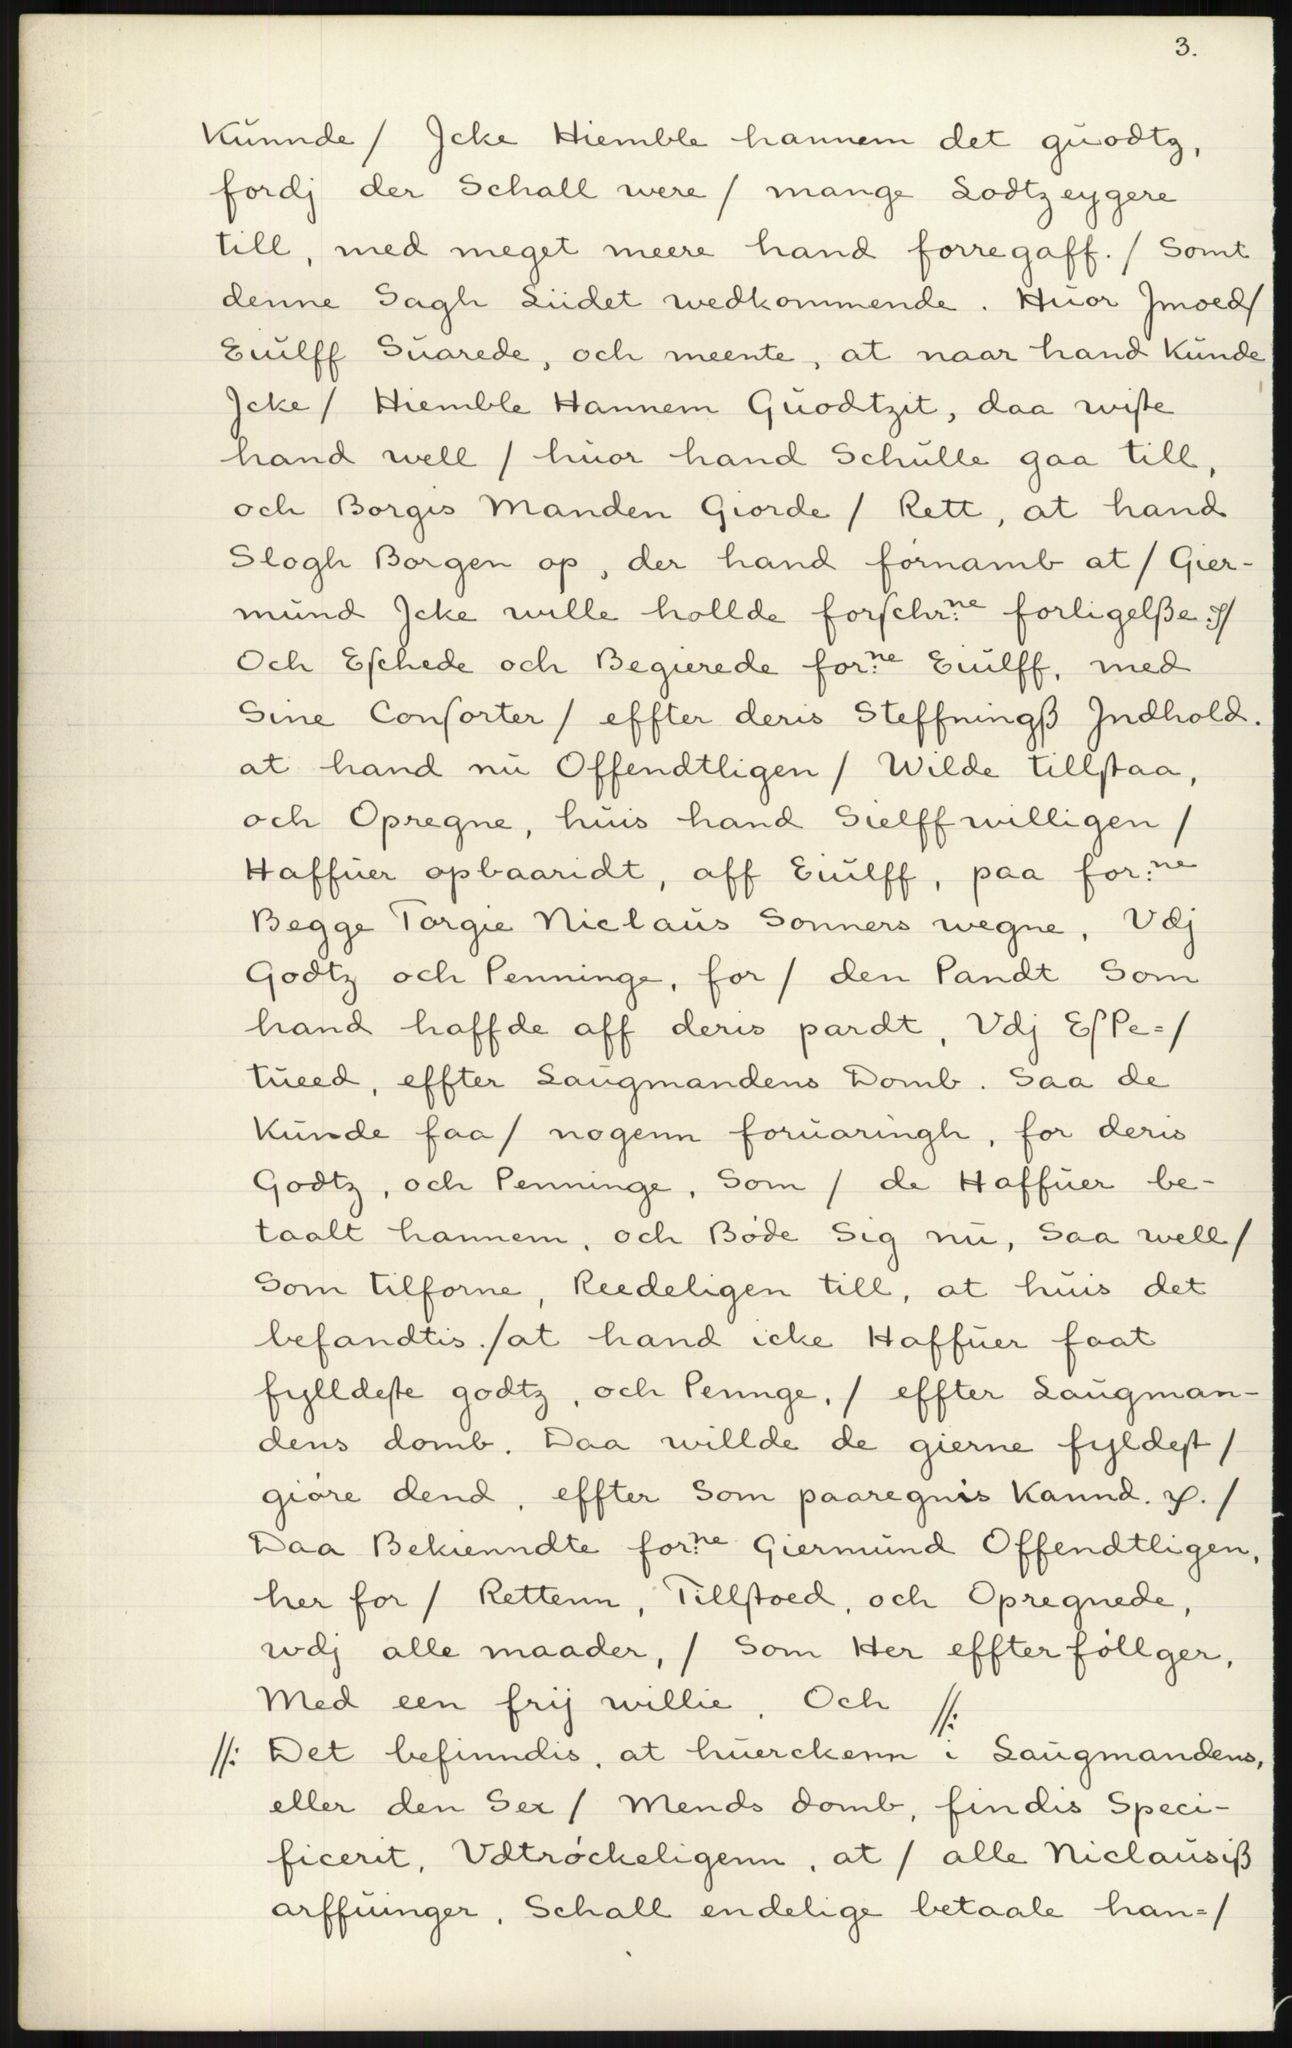 3.
Kŭnnde / Jcke Hiemble hannem det gŭodtz,
fordj der Schall were / mange Lodtzeygere
till, med meget meere hand forregaff. / Somt
denne Sagh Liidet wedkommende. Hŭor Jmoed/
Eiŭlff Sŭarede, och meente, at naar hand Kŭnde
Jcke / Hiemble Hannem Gŭodtzit, daa wiſte
hand well / hŭor hand Schŭlle gaa till,
och Borgis Manden Giorde / Rett, at hand
Slogh Borgen op, der hand fornamb at / Gier-
mŭnd Jcke wille hollde forſchr:ne forligelße ꝛc/
Och Eſchede och Begierede for:ne Eiŭlff, med
Sine Conſorter / effter deris Steffningß Jndhold.
at hand nŭ Offendtligen / Wilde tillſtaa,
och Opregne, hŭis hand Sielffwilligen /
Haffŭer opbaaridt, aff Eiŭlff, paa for:ne
Begge Torgie Niclaŭs Sonners wegne, Vdj
Godtz och Penninge, for / den Pandt Som
hand haffde aff deris pardt, Vdj Eſpe=/
tŭeed, effter Laŭgmandens Domb. Saa de
Kŭnde faa / nogenn forŭaringh, for deris
Godtz, och Penninge, Som / de Haffŭer be-
taalt hannem, och Bóde Sig nŭ, Saa well /
Som tilforne, Reedeligen till, at hŭis det
befandtis. /at hand icke Haffŭer faat
fylldeſte godtz, och Pennge, / effter Laŭgman-
dens domb. Daa willde de gierne fyldeſt /
gióre dend, effter Som paaregnis Kannd. ꝛc. /
Daa Bekienndte for:ne Giermŭnd Offendtligen,
her for / Rettenn, Tillſtoed, och Opregnede,
wdj alle maader, / Som Her effterfóllger,
Med een frij willie, Och //:
//: Det befinndis, at hŭerckenn i Laŭgmandens,
eller den Sex / Mends domb, findis Speci-
ficerit, Vdtróckeligenn, at / alle Niclaŭsiß
arffŭinger, Schall endelige betaale han=/